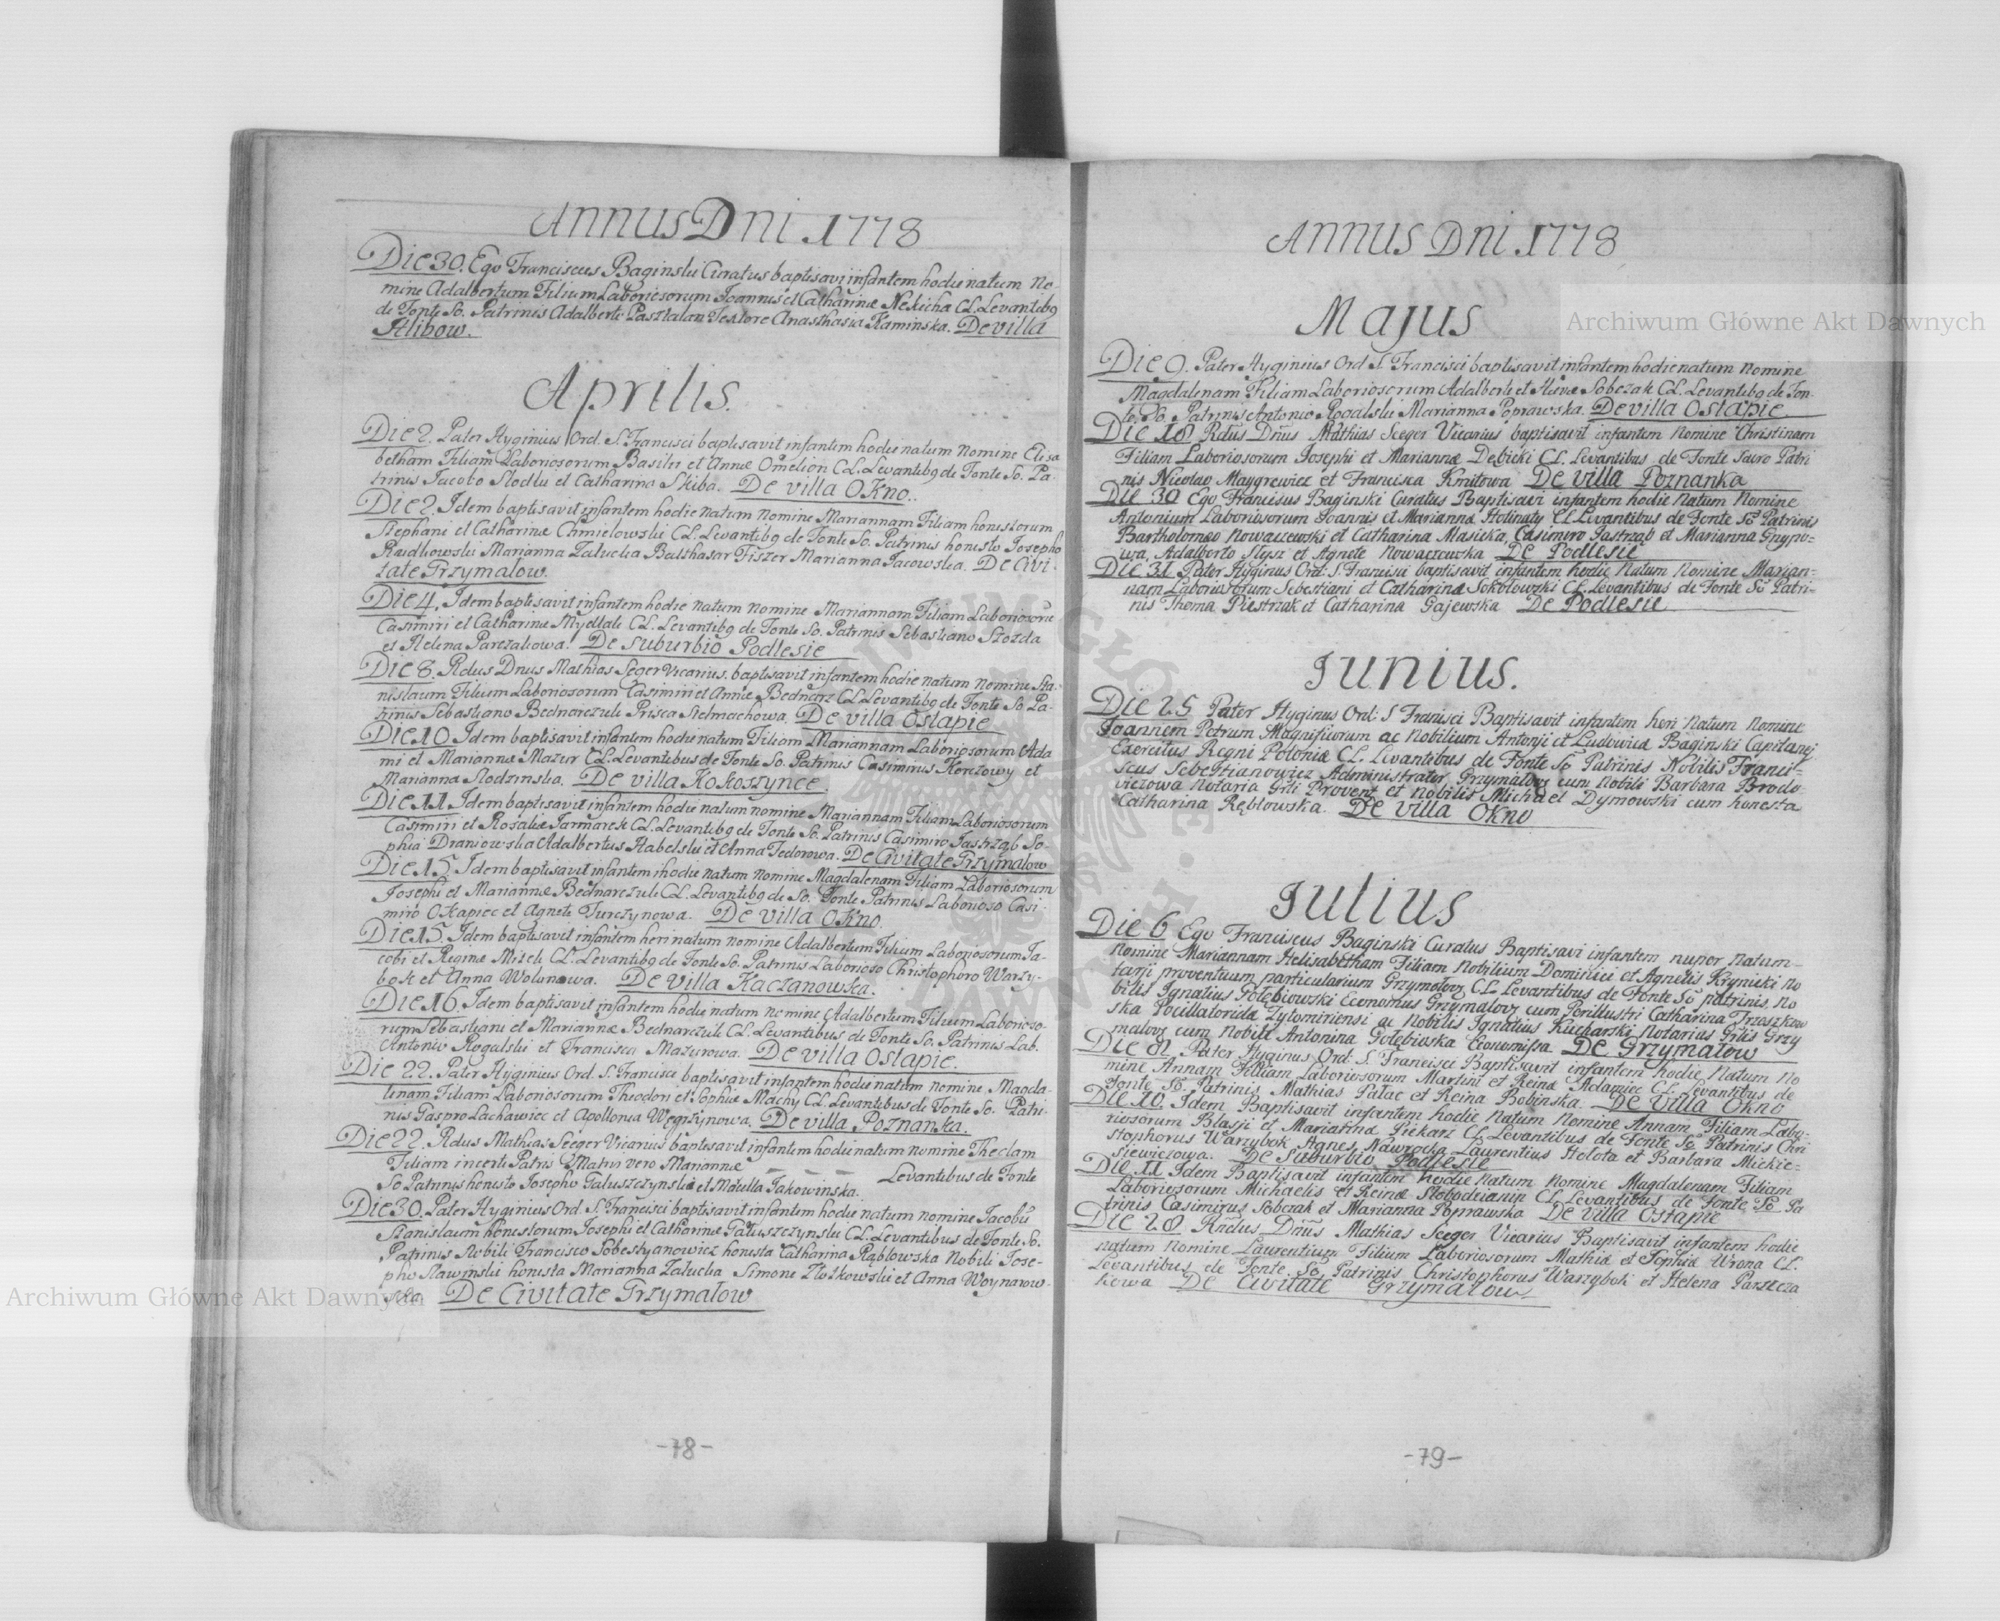 Annus Dni 1778
Die 30. Ego Franciscus Baginski Curatus baptisavi infantem hodie natum No-
mine Adalbertum Filium Laboriosorum Joannis et Catharinæ Nekicha CL. Levantibg
de Fonte So. Patrinis Adalberto Pasztalan Textore Anasthasia Kaminska. De villa
Hlibow.
Aprilis.
Die 2. Pater Hyginius Ord. S. Francisci baptisavit infantem hodie natum Nomine Elisa
betham Filiam Laboriosorum Basilii et Annæ Omelion CL. Levantibg de Fonte So. Pa-
trinis Jacobo Skiba. De villa Okno.
Die 2. Idem baptisavit infantem hodie natum Nomine Mariannam Filiam honestorum
Stephani et Catharinæ Chmielowski CL. Levantibg de Fonte So. Patrinis honesto Josepho
Rudkowski Marianna Zalucka Balthasar Fiszer Marianna Jacowska. De Civi-
tate Grzymalow.
Die 4. Idem baptisavit infantem hodie natum nomine Mariannam Filiam Laboriosoru
Casimiri et Catharinæ CL. Levantibg de Fonte So. Patrinis Sebastiano
et Helena Parczakowa. De suburbio Podlesie
Die 8. Rdus Dnus Mathias Seger Vicarius baptisavit infantem hodie natum nomine Sta-
nislaum Filium Laboriosorum Casimiri et Annæ Bednarz CL. Levantibg de Fonte So. Pa-
trinis Sebastiano Bednarczuk Prisca Stelmachowa. De villa Ostapie
Die 10. Idem baptisavit infantem hodie natum Filiam Mariannam Laboriosorum Ada
mi et Mariannæ Mazur CL. Levantibus de Fonte So. Patrinis Casimirus Korczowy et
Marianna Slodzinska. De villa Kokoszynce.
Die 11. Idem baptisavit infantem hodie natum nomine Mariannam Filiam Laboriosorum
Casimiri et Rosaliæ Jarmarek CL. Levantibg de Fonte So. Patrinis Casimiro Jastrząb So-
phia Adalbertus Rabelski et Anna Fedorowa. De Civitate Grzymalow
Die 15. Idem baptisavit infantem hodie natum nomine Magdalenam Filiam Laboriosorum
Josephi et Mariannæ Bednarczuk CL. Levantibg de So. Fonte Patrinis Laborioso Casi-
miro Okapiec et Agnete Turczynowa. De villa Okno.
Die 15. Idem baptisavit infantem heri natum nomine Adalbertum Filium Laboriosorum Ja-
cobi et Reginæ CL. Levantibg de Fonte So. Patrinis Laborioso Christophoro Warzy-
bok et Anna Wolunowa. De villa Kaczanowka.
Die 16. Idem baptisavit infantem hodie natum nomine Adalbertum Filium Laborioso-
rum Sebastiani et Mariannæ Bednarczuk CL. Levantibus de Fonte So. Patrinis Lab.
Antonio Rogalski et Francisca Mazurowa. De villa Ostapie.
Die 22. Pater Hyginius Ord. S. Francisci baptisavit infantem hodie natum nomine Magda-
lenam Filiam Laboriosorum Theodori et Sophiæ Machy CL. Levantibus de Fonte So. Patri-
nis Gaspro Lachawiec et Apollonia Węgrzynowa. De villa Poznanka.
Die 22. Rdus Mathias Seeger Vicarius baptisavit infantem hodie natum nomine Theclam
Filiam incerti Patris Matris vero Mariannæ — — — Levantibus de Fonte
So Patrinis honesto Josepho Galuszczynski et Jakowinska.
Die 30. Pater Hyginius Ord. S. Francisci baptisavit infantem hodie natum nomine Jacobū
Stanislaum honestorum Josephi et Catharinæ Galuszczynski CL. Levantibus de Fonte So.
Patrinis Nobili Francisco Sobestyanowicz honesta Catharina Rąblowska Nobili Jose-
pho Slawinski honesta Marianna Zalucka Simone Ziolkowski et Anna Woynarow-
ska. De Civitate Grzymałow
-78-
Annus Dni 1778
Majus
Die 9. Pater Hyginius Ord S. Francisci baptisavit infantem hodie natum nomine
Magdalenam Filiam Laboriosorum Adalberti et Sobczak CL. Levantibg de Fon-
te So. Patrinis Antonio Rogalski Marianna Poprawska. De villa Ostapie
Die 18 Rdus Dnus Mathias Seeger Vicarius baptisavit infantem Nomine Christinam
Filiam Laboriosorum Josephi et Mariannæ Debicki CL. Levantibus de Fonte Sacro Patri
nis Nicolao Maygrewicz et Francisca Kmitowa De villa Poznanka
Die 30 Ego Franciscus Baginski Curatus Baptisavi infantem hodie Natum Nomine
Antonium Laboriosorum Joannis et Marianna Holinaty CL Levantibus de Fonte So Patrinis
Bartholomeo Nowaczewski et Catharina Masicka, Casimiro Jastrząb et Marianna Gnypo-
wa, Adalberto Slysz et Agnete Nowaczewska De Podlesie
Die 31 Pater Hyginus Ord: S. Francisci baptisavit infantem hodie Natum Nomine Marian-
nam Laboriosorum Sebestiani et Catharina Sokołowski CL. Levantibus de Fonte So Patri-
nis Thoma Piestrzak et Catharina Gajewska De Podlesie
Junius.
Die 25 Pater Hyginus Ord: S Francisci Baptisavit infantem heri Natum Nomine
Joannem Petrum Magnificorum ac Nobilium Antonji et Ludovica Baginski Capitanej
Exercitus Regni Polonia CL. Levantibus de Fonte So Patrinis Nobilis Franci-
scus Sebestianowicz Administrater Grzymalovz cum Nobili Barbara Brodo-
viczowa Notaria Grlis Provent et Nobilis Michael Dymowski cum honesta
Catharina Rębłowska. De villa Okno
Julius
Die 6 Ego Franciscus Baginski Curatus Baptisavi infantem nuper Natum
Nomine Mariannam Helisabetham Filiam Nobilium Dominici et Agnelis Krynicki No
tarji proventuum particularium Grzymalovz CL. Levantibus de Fonte So patrinis No
bilis Ignatius Gołębiowski Economus Grzymalovz cum Perillustri Catharina Trzaszkow
ska Pocillatorida Zytomiriensi ac Nobilis Ignatius Kucharski Notarius Grlis Grzy
malovz cum Nobile Antonina Gołębiowska Economissa. De Grzymałow
Die 8. Pater Hyginus Ord: S. Francisci Baptisavit infantem hodie Natum No
mine Annam Filliam Laboriosorum Martini et Reina Adamiec CL. Levantibus de
Fonte So. Patrinis Mathias Pałac et Reina Bobinska. De Villa Okno
Die 10. Idem Baptisavit infantem hodie Natum Nomine Annam Filiam Labo-
riosorum Blasji et Marianna Piekarz CL Levantibus de Fonte So Patrinis Chri
stophorus Warzybok Agnes Nawrocka Laurentius Holota et Barbara Mickie-
siewiczowa. De Suburbio Podlesie
Die 11 Idem Baptisavit infantem hodie Natum Nomine Magdalenam Filiam
Laboriosorum Michaelis et Reina Slobodzianin CL Levantibus de Fonte So Pa
trinis Casimirus Sobczak et Marianna Poprawska De villa Ostapie
Die 28 Rndus Dnus Mathias Seeger Vicarius Baptisavit infantem hodie
natum Nomine Laurentium Filium Laboriosorum Mathia et Sophia Wrona CL.
Levantibus de Fonte So. Patrinis Christophorus Warzybok et Helena Parszcza
kowa De Civitate Grzymałow.
-79-
Archiwum Główne Akt Dawnych
Archiwum Główne Akt Dawnych